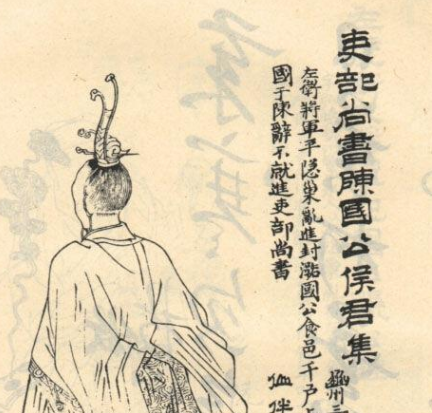 吏部尚書陳國公侯君集
豳州三
左衛將軍平隱巢亂進封潞國公食邑千戶
國于陳辭不就進吏部尚書